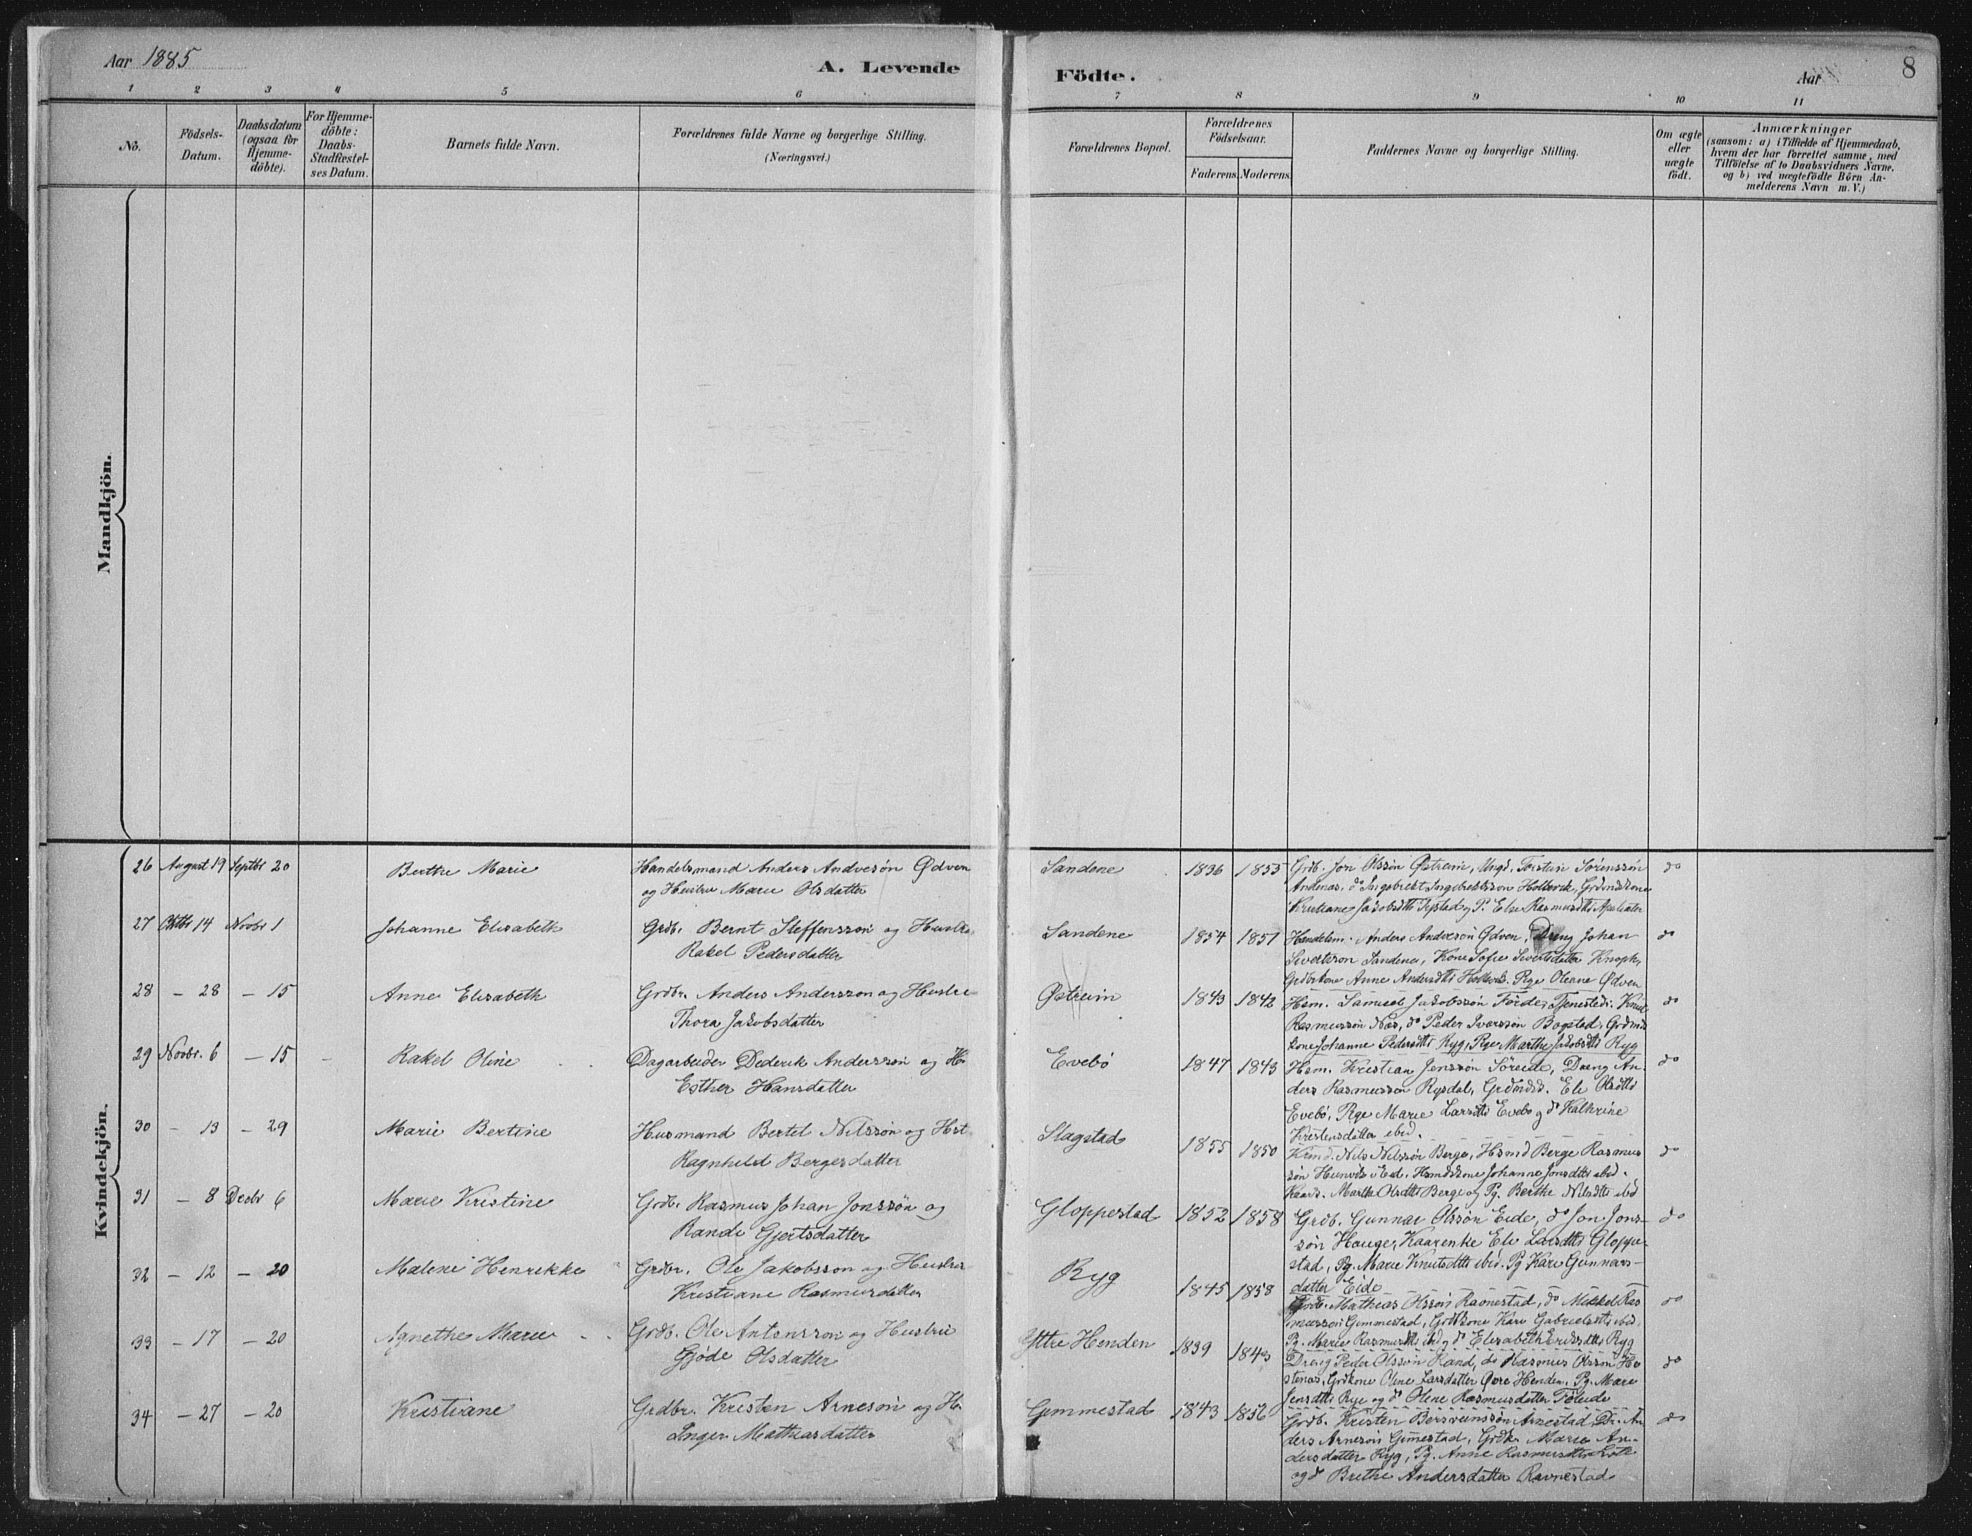 Aar 1885
A. Levende
Födte.
Aar
8
1 2 3 4 5 6 7 8 9 10 11
No.
Födsels-
Datum.
Daabsdatum
(ogsaa for
Hjemme-
döbte).
For Hjemme-
döbte:
Daabs-
Stadfæstel-
ses Datum.
Barnets fulde Navn.
Forældrenes fulde Navne og borgerlige Stilling.
(Næringsvei.)
Forældrenes Bopæl.
Forældrenes
Födselsaar.
Faderens. Moderens.
Faddernes Navne og borgerlige Stilling.
Om ægte
eller
uægte
födt.
Anmærkninger
(saasom: a) i Tilfælde af Hjemmedaab,
hvem der har forrettet samme, med
Tilföielse af to Daabsvidners Navne,
og b) ved uægtefödte Börn An-
melderens Navn m. V.)
Mandkjön.
Kvindekjön.
26 August 19 Septbr 20 Berthe Marie Handelsmand Anders Andersøn Ødven
og Hustru Marie Olsdatter
Sandene 1836 1855 Grdb. Jon Olssøn Østrem, Ungd. Torsten Sørenssøn
Andenæs, do Ingebrekt Ingebrektssøn Holtevik, Grdmdskone
Kristiane Jakobsdtr og P. Else Rasmusdtr
do
27 Oktbr 14 Novbr 1 Johanne Elisabeth Grdb. Bernt Steffenssøn og Hustru
Rakel Pedersdatter
Sandene 1854 1851 Handelsm. Anders Andersøn Ødven, Dreng Johan
Sivertson Sandene, Kone Sofie Sivertsdatter Knoph,
Grdbrkone Anne Andersdtr Pige Oleane Ødven
do
28 - 28 - 15 Anne Elisabeth Grdbr. Anders Anderssøn og Hustru
Thora Jakobsdatter
Østrem 1843 1842 Hsm. Samuel Jakobssøn Förde, Tjenested. Knut
Rasmussøn Næs, do Peder Ivarssøn Bogstad, Grdmds
kone Johanne Pedersdtr Ryg, Pige Marthe Jakobsdtr Ryg
do
29 Novbr. 6 - 15 - Rakel Oline Dagarbeider Dederik Anderssøn og H.
Esther Hansdatter
Evebø 1847 1843 Hsm. Kristian Jenssøn Söreide, Dreng An-
ders Rasmussøn Rysdal, Grdmdsd. Eli Olsdtr
Evebø, Pige Marie Larsdtr Evebø og do Kathrine
Kristensdatter ibid.
do
30 - 13 - 29 Marie Bertine Husmand Bertel Nilssøn og Hst
Ragnhild Bergesdatter
Slagstad 1855 1850 Nils Nilssøn Berge, Hsmd Berge Rasmus
søn i Eid. Hsmdskone Johanne Jonsdtr ibid.
Marthe Olsdtr Berge og Pg. Berthe Nilsdtr ibid
do
31 - 8 Decbr 6 Marie Kristine Grdb. Rasmus Johan Jonssøn og
Randi Gjertsdatter
Gloppestad 1852 1858 Grdb. Gunnar Olssøn Eide, do Jon Jons-
søn Hauge, Kaarenke Eli Larsdtr Gloppe-
stad, Pg. Marie Knutsdtr ibid. Pg Kari Gunnars-
datter Eide
do
32 - 12 - 20 Malene Henrikke Grdbr. Ole Jakobsson og Hustru
Kristiane Rasmusdatter
Ryg 1845 1858 Grdb. Mathias Olssøn Ravnestad, do Mikkel Ras
mussøn Gimmestad, Grdkone Kari Gabrielsdtr ibid.
Pg. Marie Rasmusdtr ibid og do Elisabeth Ryg
do
33 - 17 - 20 Agnethe Marie Grdb. Ole Antonsson og Hustru
Gjøde Olsdatter
Yttre Henden 1839 1843 Dreng Peder Olssøn Rand, do Rasmus Olssøn He
stenæs, Grdkone Oline Larsdatter Øvre Henden, Pg. Mari
Jensdtr Rye og do Oline Rasmusdatter
do
34 - 27 - 20 Kristiane Grdbr. Kristen Arnesøn og H.
Inger Mathiasdatter
Gimmestad 1843 1856 Grdb. Kristen Arnestad, Dr. An-
ders Arnesøn Gimestad, Grdk Marie An-
dersdatter Ryg, Pg. Anne Rasmusdtr
og do Brithe Andersdatter Ravnestad
do